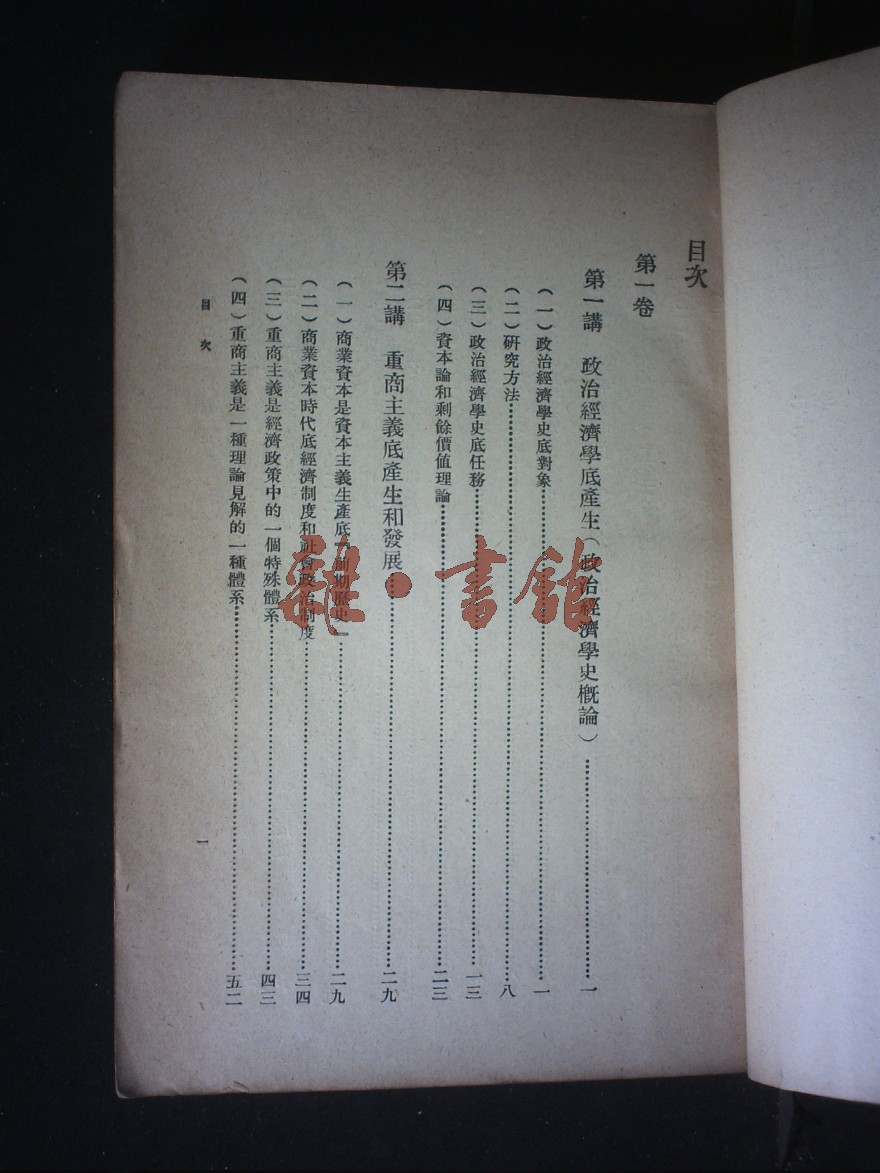 目次
第一卷
第一講　政治經濟學底產生（政治經濟學史概論）……一
（一）政治經濟學史底對象……一
（二）研究方法……八
（三）政治經濟學史底任務……一三
（四）資本論和剩餘價值理論……二三
第二講　重商主義底產生和發展……二九
（一）商業資本是資本主義生產底『前期歷史』……二九
（二）商業資本時代底經濟制度和社會政治制度……三四
（三）重商主義是經濟政策中的一個特殊體系……四三
（四）重商主義是一種理論見解的一種體系……五二
目次
一
雜·書館